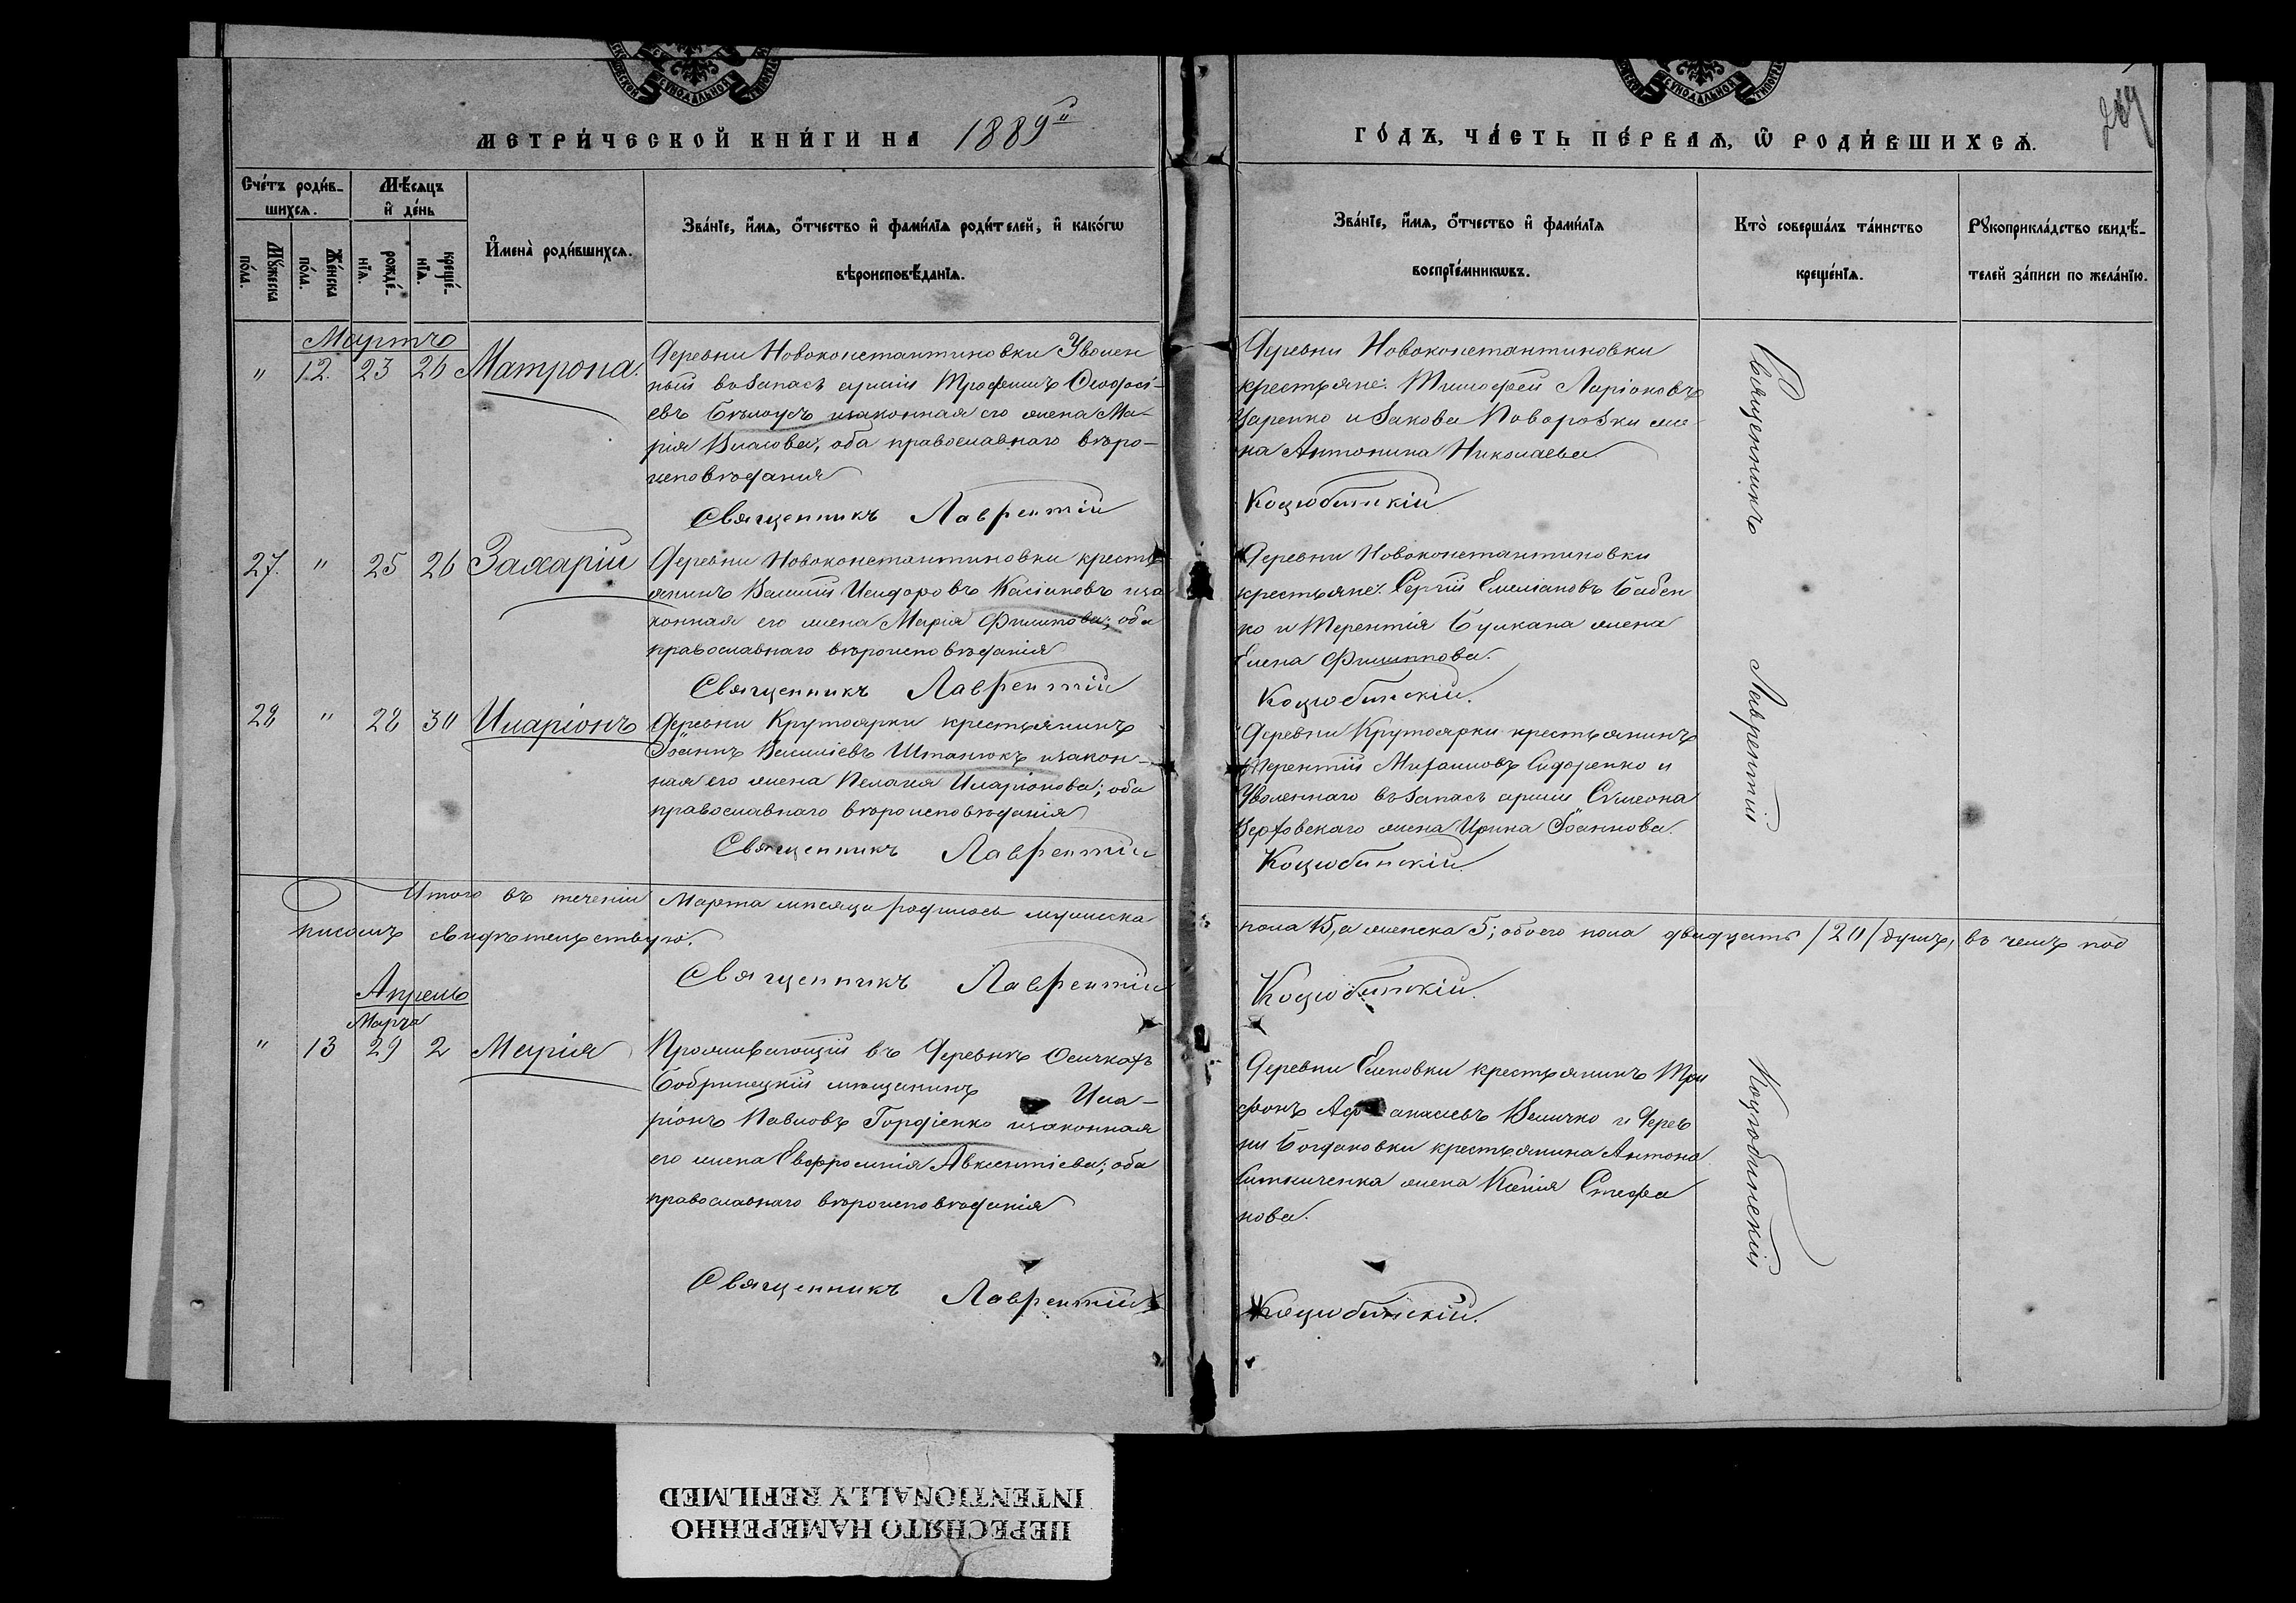 МЕТРИ́ЧЕСКОЙ КНИ́ГИ НА 1889й
ГО́ДЪ, ЧА́СТЬ ПЕ́РВАѦ, Ѽ РОДИ́ВШИХСѦ.
Сче́тъ роди́в-
шихсѧ.
Мѣ́сѧцъ
и҆ де́нь
Мꙋ́жеска
по́ла.
Же́нска
по́ла.
рожде́-
нїѧ.
креще́-
нїѧ.
И҆мена̀ роди́вшихсѧ.
Зва́нїе, и҆́мѧ, ѻ҆́тчество и҆ фами́лїѧ роди́телей, и҆ како́гѡ
вѣроисповѣ́данїѧ.
Зва́нїе, и҆́мѧ, ѻ҆́тчество и҆ фами́лїѧ
воспрїе́мникѡвъ.
Кто̀ соверша́лъ та́инство
креще́нїѧ.
Рꙋкоприкла́дство свидѣ́-
телей за́писи по жела́нїю.
Мартъ
" 12. 23 26 Матрона.
Деревни Новоконстантиновки Уволен
ный въ запасъ арміи Трофимъ Ѳеодосі-
евъ Бѣлоусъ и законная его жена Ма-
рія Власова, оба православнаго вѣро-
исповѣданія
Священникъ Лаврентій
Деревни Новоконстантиновки
крестьяне: Тимофей Ларіоновъ
Царенко и Іакова Поворозки же
на Антонина Николаева.
Коцюбинскій
27. " 25 26 Захарій
Деревни Новоконстантиновки кресть
янинъ Василій Исидоровъ Касіановъ и за
конная его жена Марія Филипова; оба
православнаго вѣроисповѣданія
Священникъ Лаврентій
Деревни Новоконстантиновки
крестьяне: Сергій Емеліановъ Бабен
ко и Терентія Булкана жена
Елена Филиппова.
Коцюбинскій.
28 " 28 30 Иларіонъ
Деревни Крутоярки крестьянинъ
Іоаннъ Василіевъ Штанюкъ и закон-
ная его жена Пелагея Иларіонова; оба
православнаго вѣроисповѣданія
Священникъ Лаврентій
Деревни Крутоярки крестьянинъ
Терентій Михаиловъ Сидоренко и
Уволеннаго въ запасъ арміи Сѵмеона
Вербовскаго жена Ирина Іоаннова.
Коцюбинскій.
Итого въ теченіи Марта мѣсяца родилось мужеска
пола 15, а женска 5; обоего пола двадцать /20/ душъ, въ чемъ под
писомъ свидѣтельствую.
Священникъ Лаврентій
Коцюбинскій.
Апрель
Марта
" 13 29 2 Марія
Проживающій въ Деревнѣ Осичкахъ
Бобринецкій мѣщанинъ Ила-
ріонъ Павловъ Гордіенко и законная
его жена Евфросинія Авксентіева; оба
православнаго вѣроисповѣданія
Священникъ Лаврентій
Деревни Еленовки крестьянинъ Три
фонъ Афанасіевъ Величко и Дерев
ни Богдановки крестьянина Антона
Ситниченка жена Ксенія Стефа
нова.
Коцюбинскій.
Священникъ Лаврентій Коцюбинскій
ПЕРЕСНЯТО НАМЕРЕННО
INTENTIONALLY REFILMED